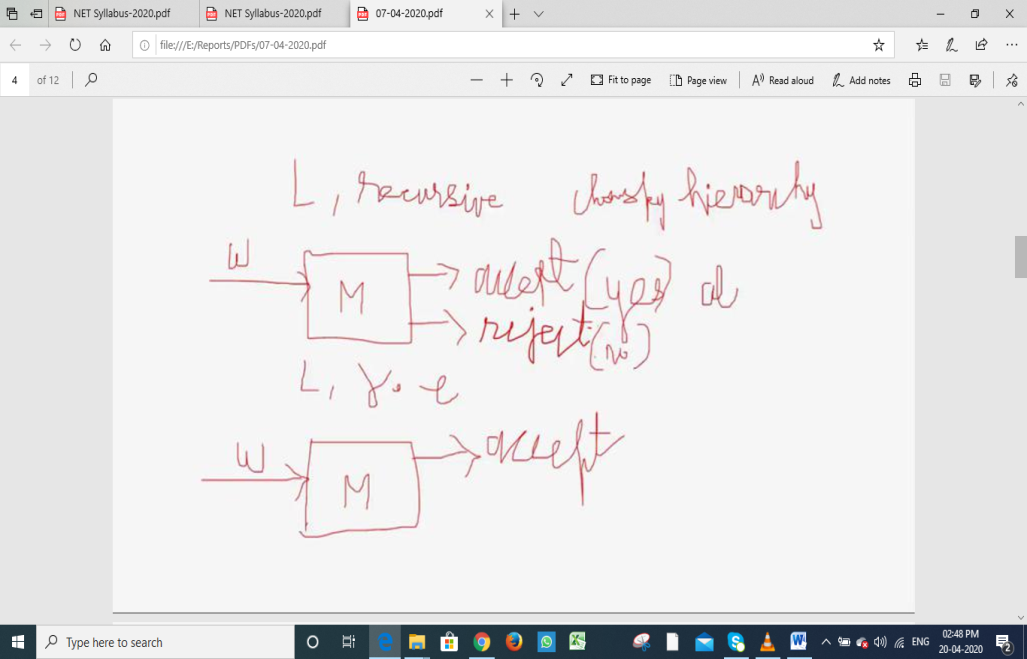 NET Syllabus-2020.pdf NET Syllabus-2020.pdf 07-04-2020.pdf
file:///E:/Reports/PDFs/07-04-2020.pdf
4 of 12 Fit to page Page view Read aloud Add notes
L, recursive Chomsky hierarchy
W M accept (yes)
reject (no)
L, r.e
W M accept
Type here to search ENG 02:48 PM
20-04-2020 2